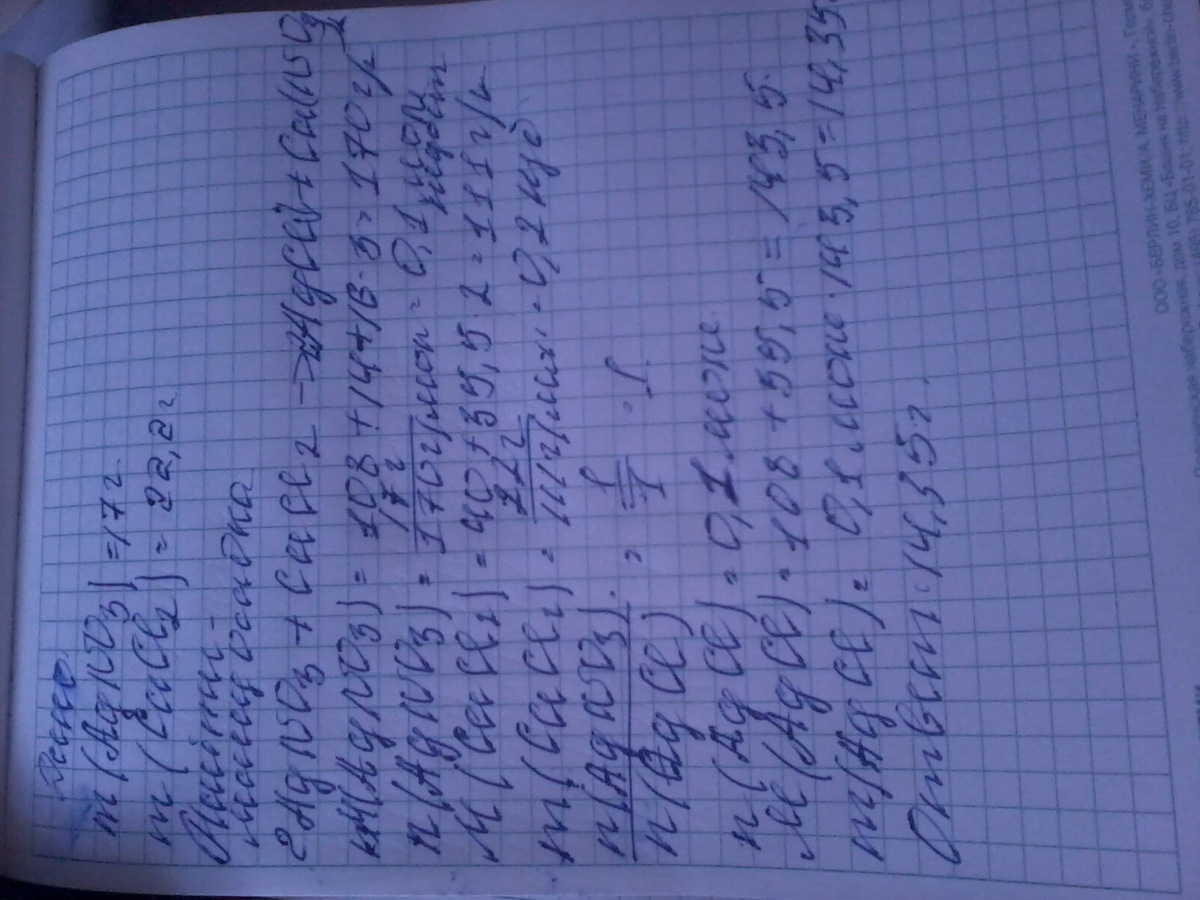 Дано:
m(AgNO3)=17г
m(CaCl2)=22,2г
Найти -
массу осадка
2AgNO3 + CaCl2 → 2AgCl↓ + Ca(NO3)2
M(AgNO3) = 108+14+16·3=170г/м
n(AgNO3) = 17г / 170г/мол = 0,1 моль
M(CaCl2) = 40+35,5·2=111г/м
n(CaCl2) = 22г / 111г/мол = 0,2
n(AgNO3) / n(AgCl) = 1/1 = 1
n(AgCl) = 0,1 моль.
M(AgCl) = 108+35,5=143,5.
m(AgCl) = 0,1 моль·143,5=14,35
Ответ: 14,35г.
ООО «БЕРЛИН-ХЕМИ/А. МЕНАРИНИ»